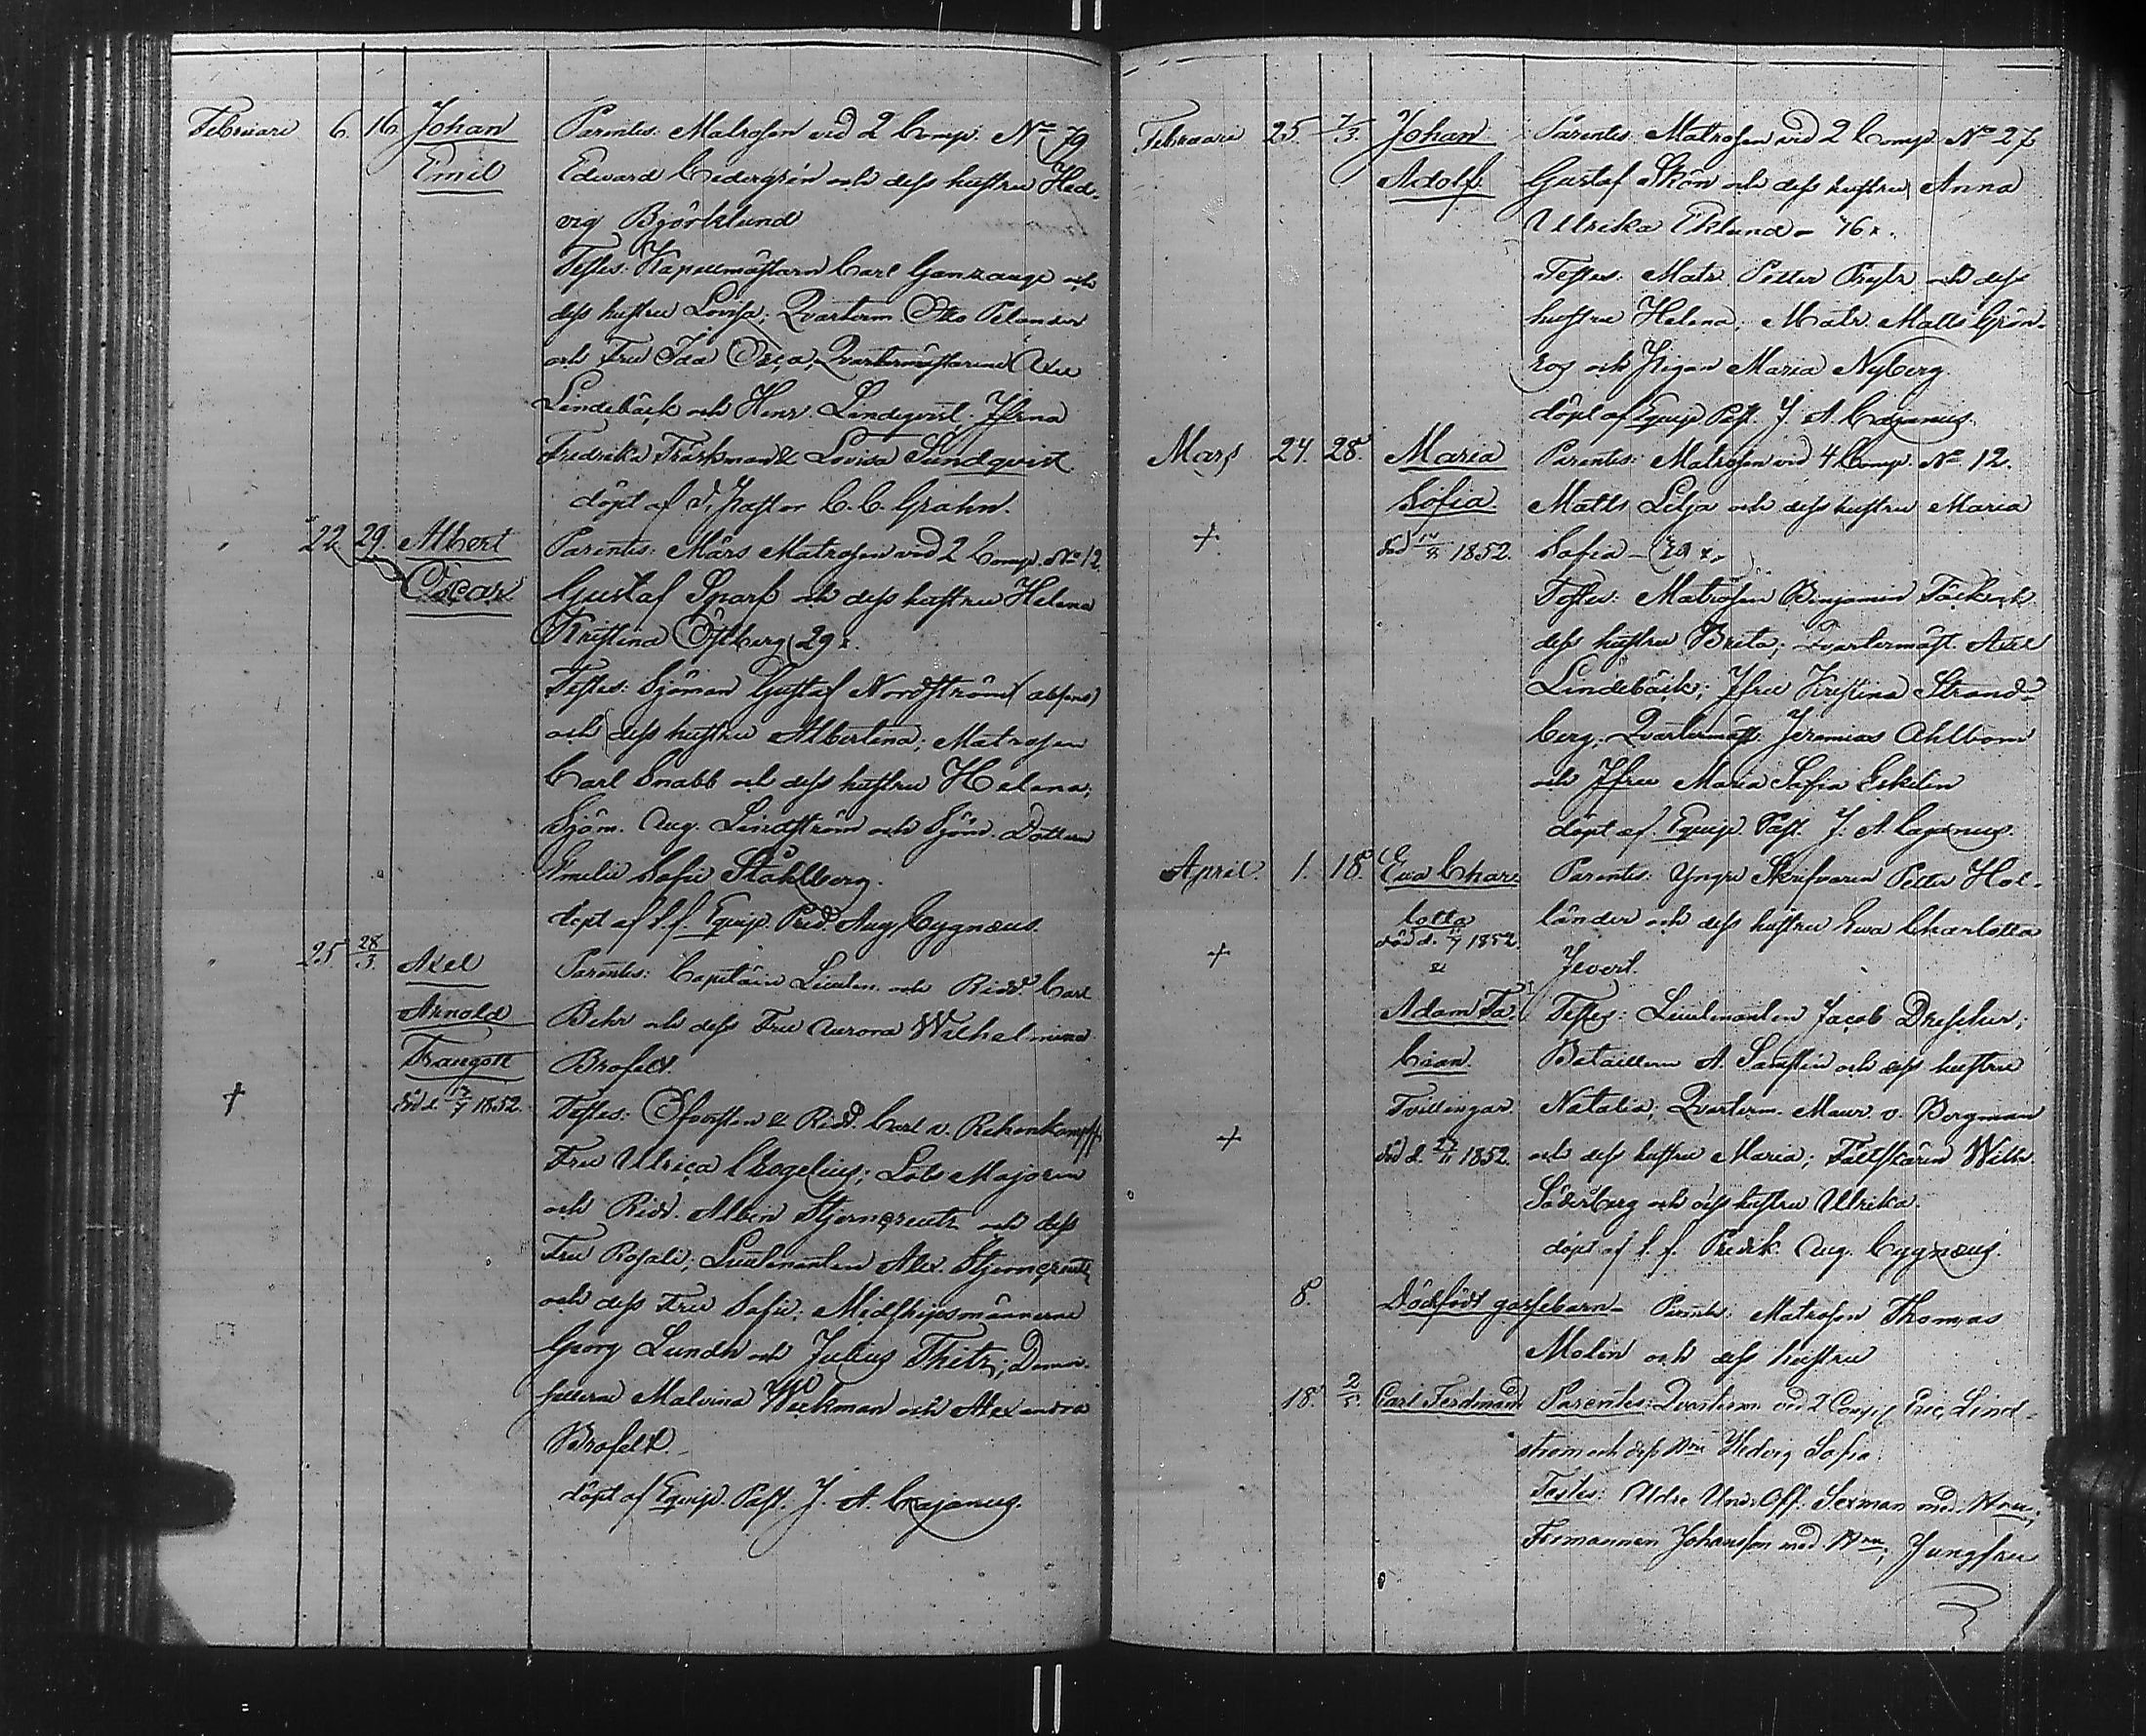 Februari 6. 16. Johan Parentes: Matrosen vid 2 Comp. No 79
Emil Edvard Cedergrén och dess hustru Hed-
vig Björklund
Testes: Kapellmästarn Carl Ganzauge och
dess hustru Lovisa; Qvarterm. Otto Pelander
och Fru Ida Orea, Qvartermästarene Axel
Lindebäck och Henr. Lindqvist; Jfrna
Fredrika Träskman & Lovisa Sundqvist.
döpt af Pastor C. C. Grahn.
22. 29. Albert Parentes: Mars Matrosen vid 2 Comp. No 12.
Oscar Gustaf Sparf och dess hustru Helena
Kristina Östberg 29 x.
Testes: Sjöman Gustaf Nordström (absens)
och dess hustru Albertina; Matrosen
Carl Snabb och dess hustru Helena;
Sjöm. Aug. Lindström och Sjöm. Dottern
Emelie Sofie Ståhlberg.
döpt af t. f. Equip. Pred. Aug. Cygnæus.
25. 28/3. Axel Parentes: Capitain Lieuten. och Ridd. Carl
Arnold Behr och dess Fru Aurora Wilhelmina
Traugott Brofelt.
† död d. 17/7 1852. Testes: Öfversten & Ridd. Carl v. Rehenkampff,
Fru Ulrica Chogelius; Lots Majoren
och Ridd. Albin Stjerncreutz och dess
Fru Rosali; Lieutenanten Alex. Stjerncreutz
och dess Fru Sofie; Midshipsmännerne
Georg Lundh och Julius Thitz; Demoi-
sellerne Malvina Weckman och Alexandra
Brofelt.
döpt af Equip. Past. J. A. Cajanus.
Februari 25. 7/3. Johan Parentes: Matrosen vid 2 Comp. No 27
Adolf. Gustaf Skön och dess hustru Anna
Ullrika Eklund - 46 x.
Testes: Matr. Petter och dess
hustru Helena; Matr. Matts Grön-
roos och Pigan Maria Nyberg.
döpt af Equip. Past. J. A. Cajanus.
Mars 24. 28. Maria Parentes: Matrosen vid 4 Comp. No 12.
Sofia. Matts Lilja och dess hustru Maria
† död 14/8 1852. Sofia -
Testes: Matrosen Benjamin Täck och
dess hustru Breta; Qvartermäst. Axel
Lindebäck; Jfru Kristina Strand-
berg; Qvartermäst. Jeremias Ahlbom
och Jfru Maria Sofia Eskelin
döpt af Equip. Past. J. A. Cajanus.
April. 1. 18. Eva Char- Parentes: Yngre Skrifvaren Petter Hol-
lotta länder och dess hustru Eva Charlotta
† död d. 1852. Jevert.
&
Adam Fa- Testes: Lieutenanten Jacob Drescher;
bian. Bataillonn A. Sanftin och dess hustru
Tvillingar. Natalia; Qvarterm. Maur. v. Borgman
† död d. 1852. och dess hustru Maria; Fältskären Wilh.
Söderberg och dess hustru Ullrika.
döpt af t. f. Predik. Aug. Cygnæus.
8. Dödfödt gossebarn - Parentes: Matrosen Thomas
Molin och dess hustru
18. 2/5. Carl Ferdinand Parentes: Qvarterm. vid 2 Comp. Eric Lind-
strøm och dess Hru Hedvig Sofia
Testes: Äldre Und. Off. Sexman med Hru;
Formannen Johansson med Hru; Jungfru